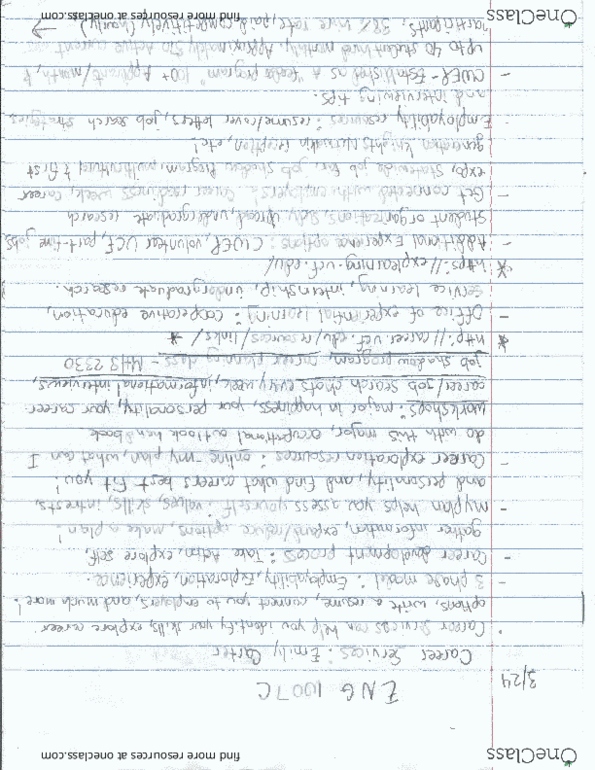 OneClass find more resources at oneclass.com
ENG 1007C
3/24 Career Services: Emily Carter
· Career Services can help you identify your skills, explore career
options, write a resume, connect you to employers, and much more!
- 3 phase model: Employability, Exploration, experience.
- Career development process: Take Action, explore self,
gather information, expand/reduce options, make a plan!
- my plan helps you assess yourself: values, skills, interests,
and personality, and find what careers best fit you!
- Career exploration resources: online - my plan, what can I
do with this major, occupational outlook handbook
workshops: major in happiness, your personality, your career
career/job search chats every week, informational interviews,
job shadow program, career planning class - MHS 2330
* http://career.ucf.edu/resources/links/ *
- Office of experiential learning: cooperative education,
service learning, internship, undergraduate research.
* https://explearning.ucf.edu/
- Additional Experience options: CWEP, volunteer UCF, part-time jobs,
student organizations, study abroad, undergraduate research
- Get connected with employers: career readiness week, career
expo, statewide job fair, job shadow program, multicultural & first
generation knights networkin reception, etc!
- Employability resources: resume/cover letters, job search strategies
and interviewing tips.
- CWEP - Established as a "feeder program" 100+ Applicants/month, &
up to 40 student hired monthly, Approximately 510 Active current
participants; 58% hire rate, paid competitively (hourly) →
OneClass find more resources at oneclass.com